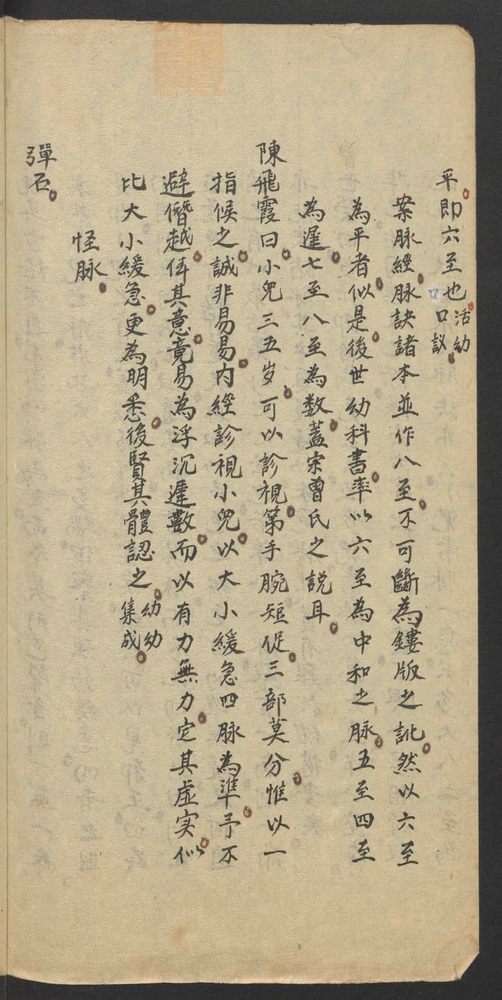 平即六至也活幼口議
案脉經脉訣諸本並作八至不可斷為鏤版之訛然以六至
為平者似是後世幼科書率以六至為中和之脉五至四至
為遲七至八至為数蓋宗曾氏之說耳
陳飛霞曰小兒三五岁可以診視第手腕短促三部莫分惟以一
指候之誠非易易內經診視小兒以大小緩急四脉為準予不
避僭越体其意竟易為浮沉遲數而以有力無力定其虛实似
比大小緩急更為明悉後賢其體認之幼幼集成
怪脉
彈石